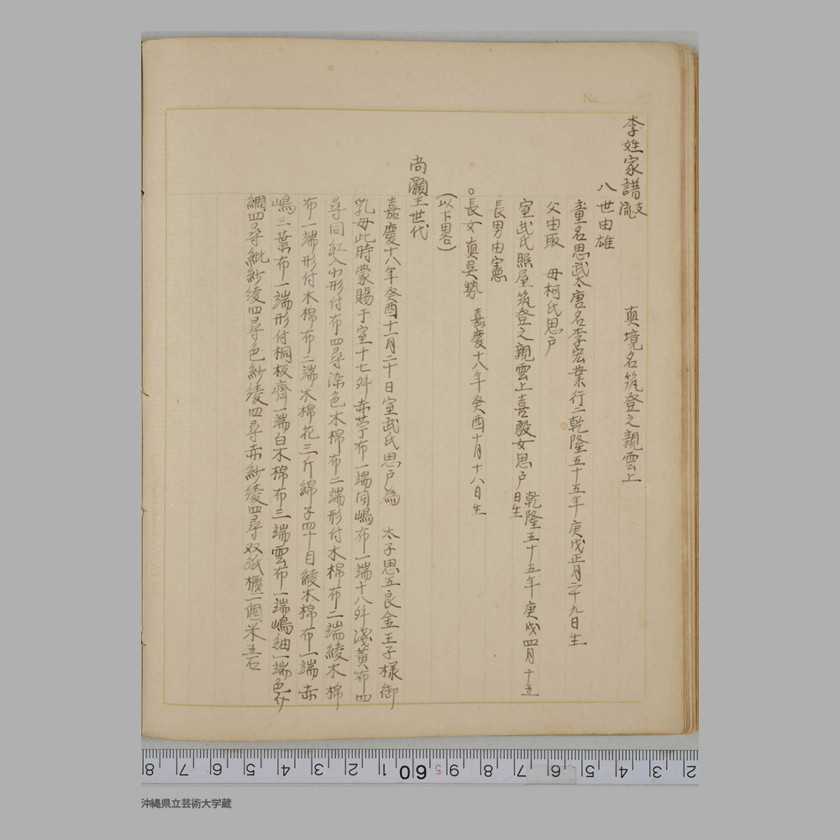 李姓家譜支流
八世由雄 真境名筑登之親雲上
童名思武太唐名李宏業行二乾隆五十五年庚戌正月二十九日生
父由取 母柯氏思戸
室武氏照屋筑登之親雲上喜毅女思戸乾隆五十五年庚戌四月十五日生
長男由憲
○長女真吴勢 嘉慶十八年癸酉十月十八日生
(以下畧)
尚灝王世代
嘉慶十八年癸酉十一月二十日室武氏思戸為 太子思五良金王子様御
乳母此時蒙賜于室十七舛赤苧布一端同嶋布一端十八舛浅黄布四
尋同紅入小形付布四尋染色木棉布二端形付木棉布二端綾木棉
布一端形付木棉布二端木棉花三斤綿子四十目綾木棉布一端赤
嶋三葉布一端形付桐板齊一端白木棉布三端雲布一端嶋紬一端色紗
綢四尋紕紗綾四尋色紗綾四尋赤紗綾四尋双紙櫃一個米五石
No.
8 7 6 5 4 3 2 1 60 9 8 7 6 5 4 3 2
沖縄県立芸術大学蔵